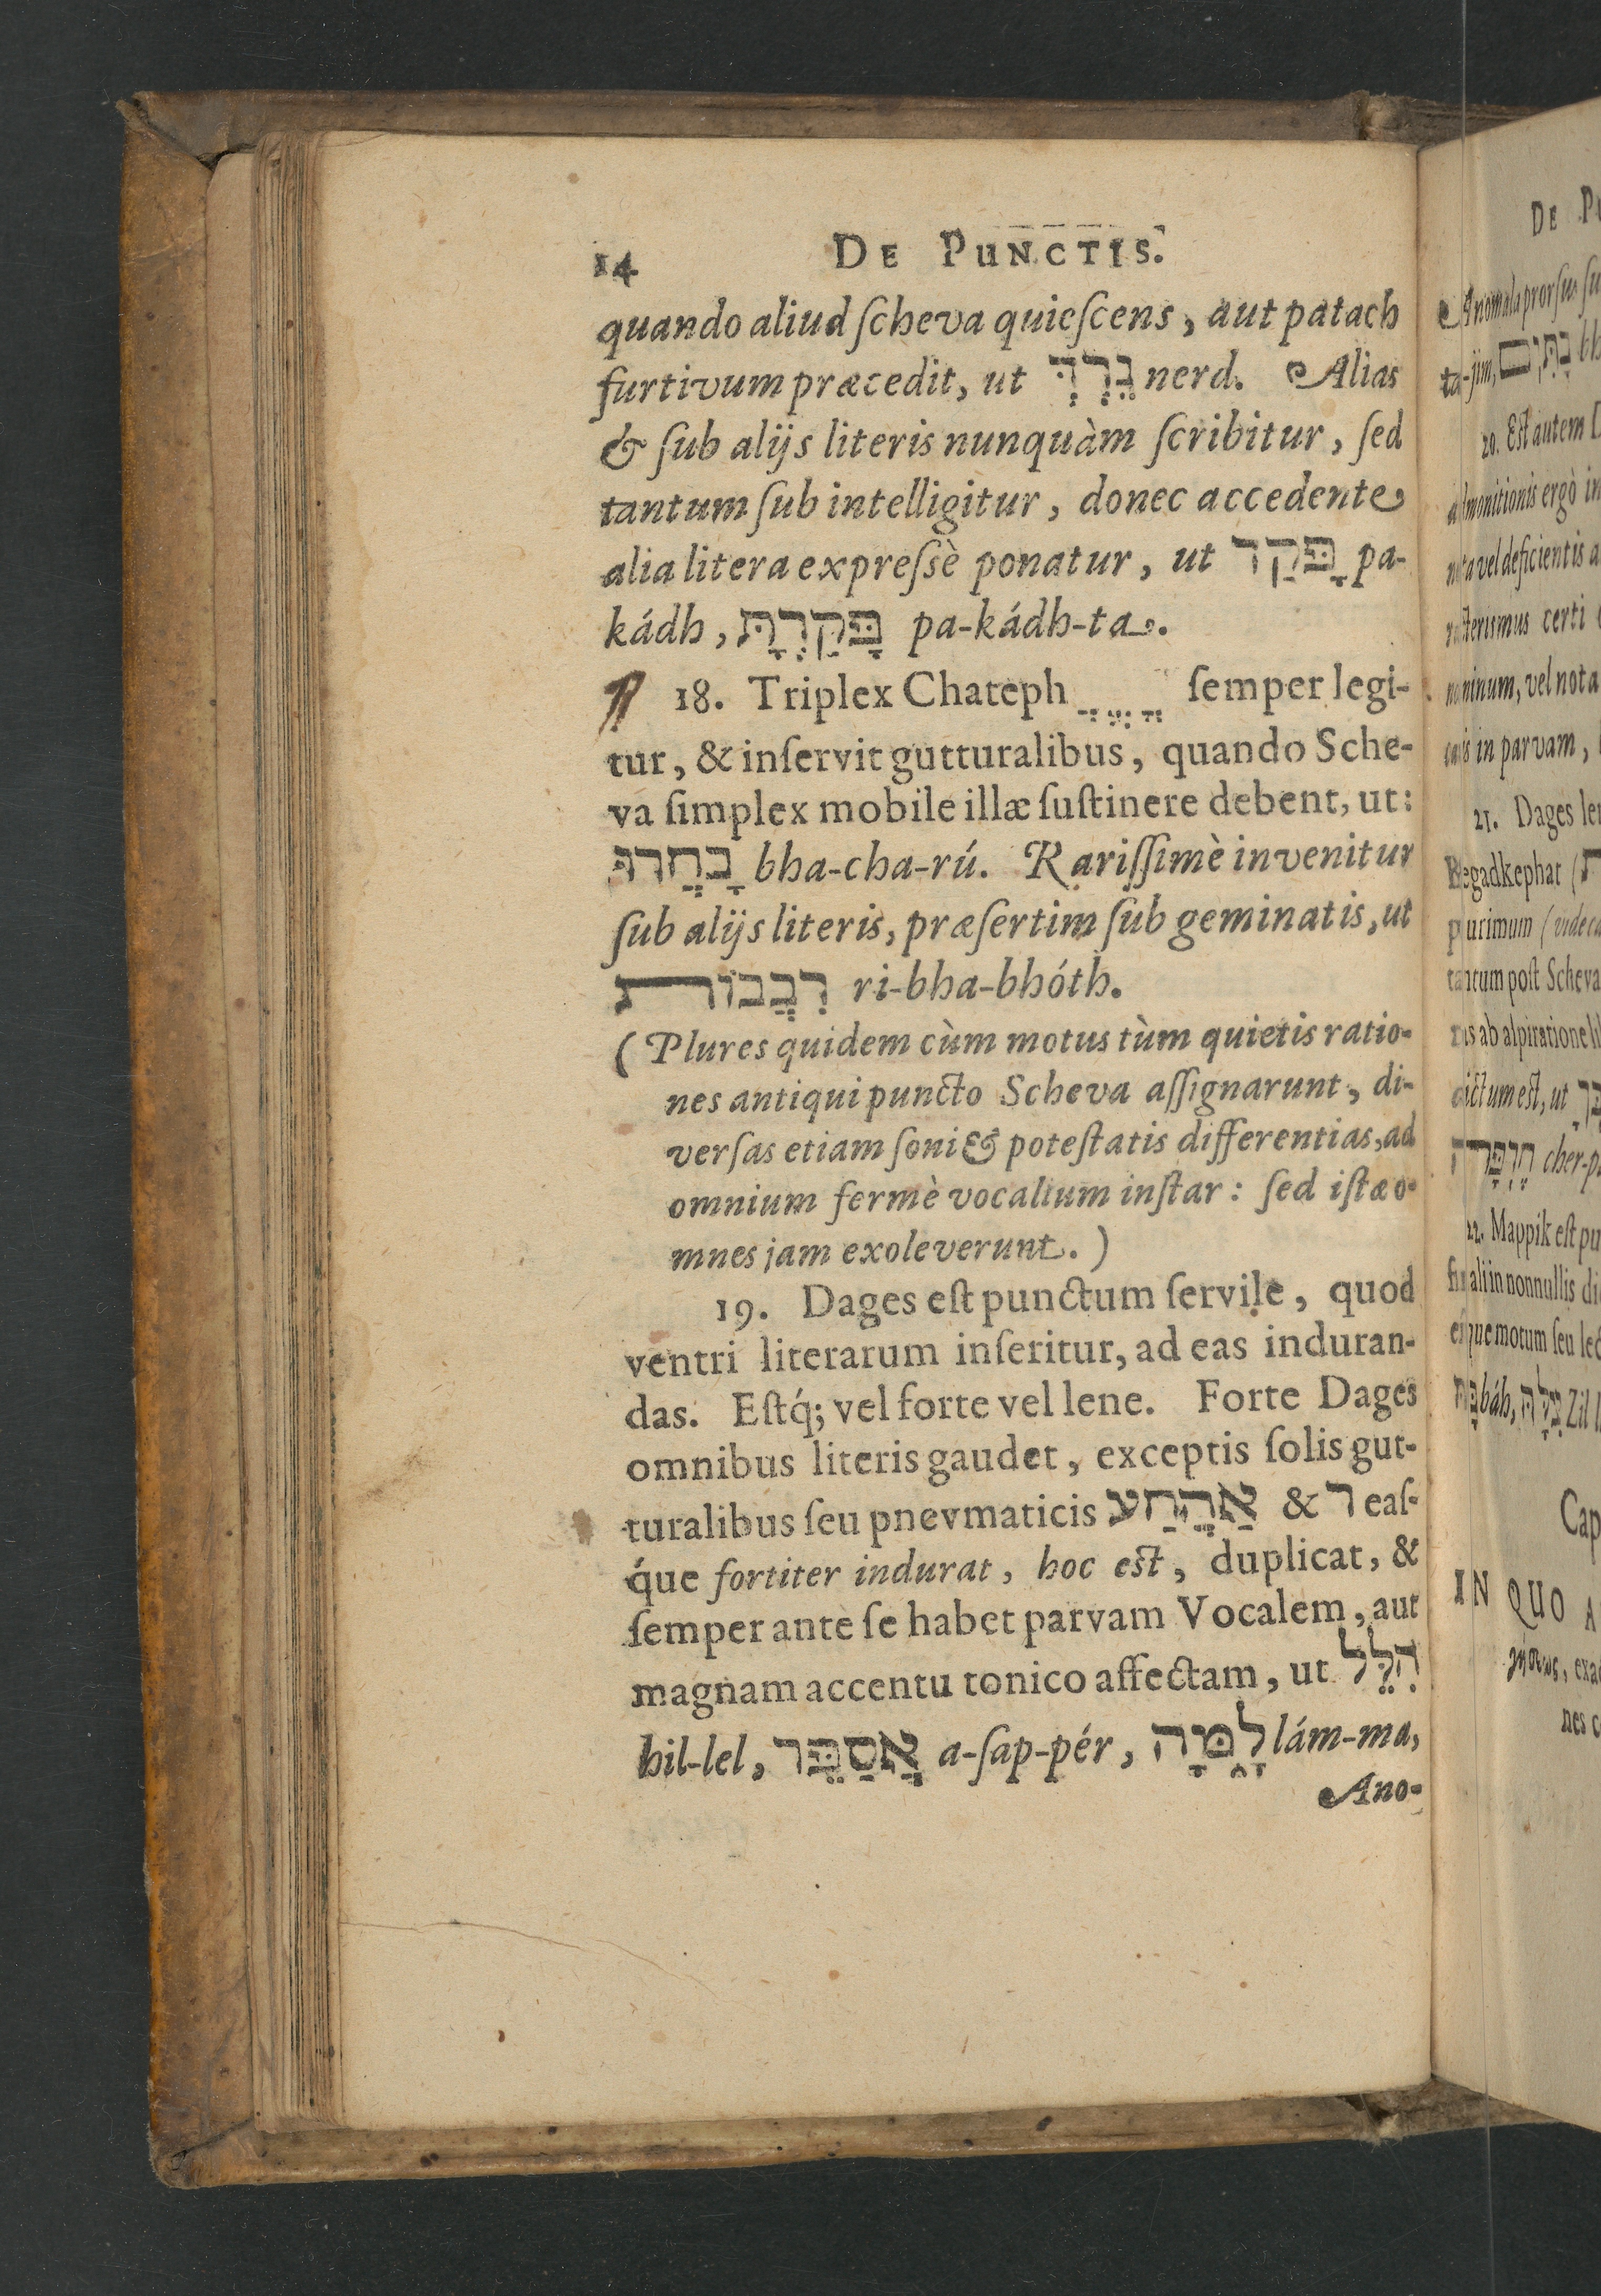 14 DE PUNCTIS.
quando aliud ſcheva quieſcens, aut patach
furtivum præcedit, ut נֵרְדְּ nerd. Alias
& ſub alijs literis nunquàm ſcribitur, ſed
tantum ſub intelligitur, donec accedente
alia litera expreſsè ponatur, ut פָּקַד pa-
kádh, פָּקַדְתָּ pa-kádh-ta.
18. Triplex Chateph ֲ ֱ ֳ ſemper legi-
tur, & inſervit gutturalibus, quando Sche-
va ſimplex mobile illæ ſuſtinere debent, ut:
בָחֲרוּ bha-cha-rú. Rariſſimè invenitur
ſub alijs literis, præſertim ſub geminatis, ut
רִבֲבוֹת ri-bha-bhóth.
(Plures quidem cùm motus tùm quietis ratio-
nes antiqui puncto Scheva aſſignarunt, di-
verſas etiam ſoni & poteſtatis differentias, ad
omnium fermè vocalium inſtar: ſed iſtæ o-
mnes jam exoleverunt.)
19. Dages eſt punctum ſervile, quod
ventri literarum inſeritur, ad eas induran-
das. Eſtq́; vel forte vel lene. Forte Dages
omnibus literis gaudet, exceptis ſolis gut-
turalibus ſeu pnevmaticis אַהֲחַע & ר eaſ-
q́ue fortiter indurat, hoc eſt, duplicat, &
ſemper ante ſe habet parvam Vocalem, aut
magnam accentu tonico affectam, ut הִלֵּל
hil-lel, אֲסַפֵּר a-ſap-pér, לָמָּה lám-ma,
Ano-
DE
Anomala prorſus
ta-jim,
20. Eſt autem
admonitionis ergò in
nota vel deficientis
certi
vel nota
in parvam,
21. Dages
Begadkephat
plurimum
tantum poſt Scheva
dictum eſt, ut
cher-
22. Mappik eſt
in nonnullis
motum ſeu
báh, Zil
Cap
IN QUO
nes